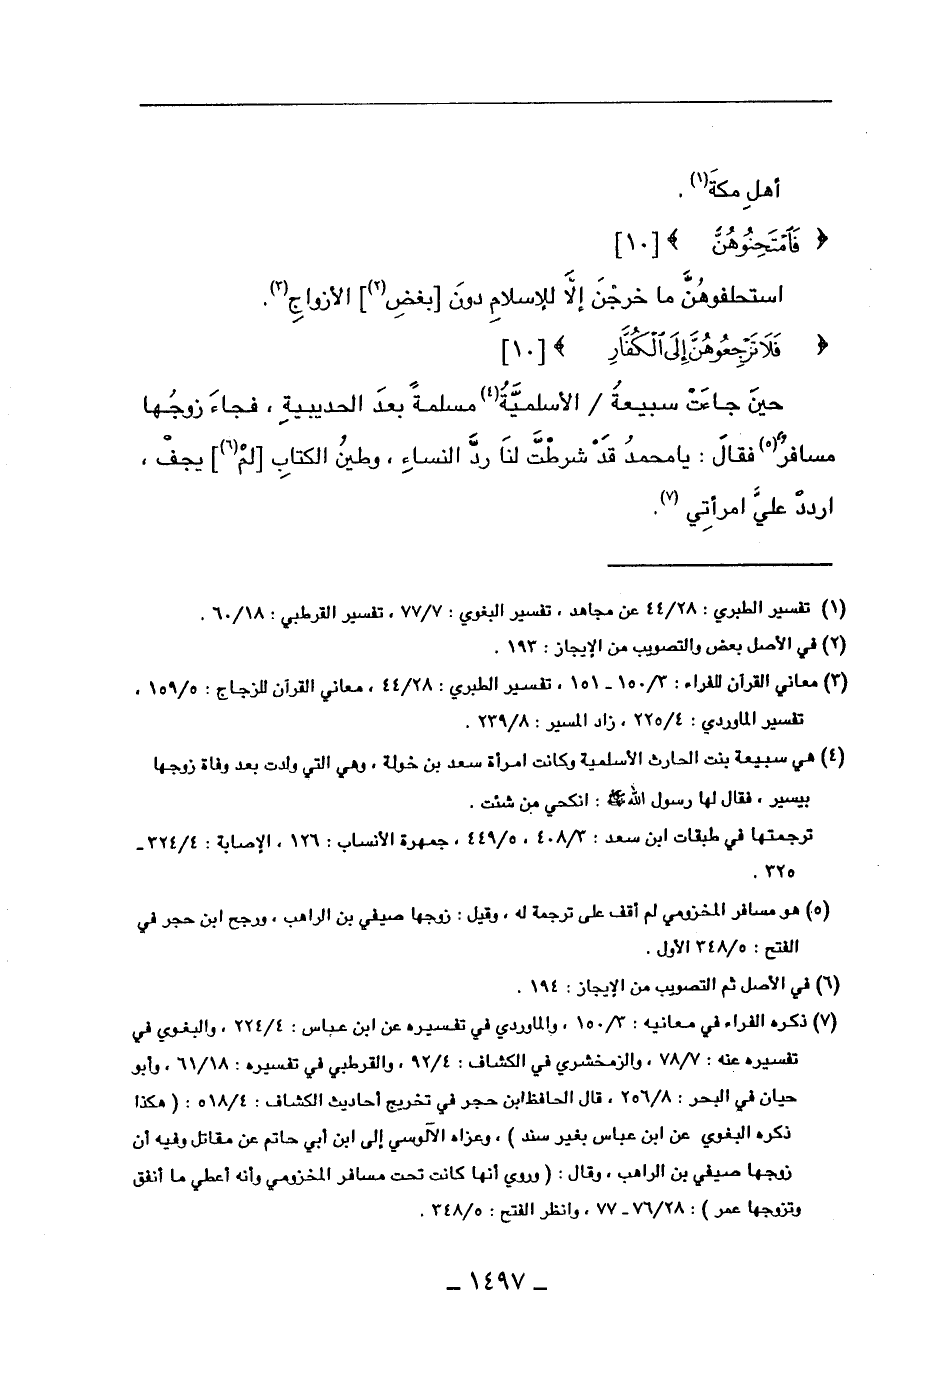 أهلِ مكةَ(١) .
﴿ فَٱمۡتَحِنُوهُنَّ ﴾ [١٠]
استحلفوهُنَّ ما خرجْنَ إلَّا للإسلامِ دونَ [بغضِ(٢)] الأزواجِ(٣).
﴿ فَلَا تَرۡجِعُوهُنَّ إِلَى ٱلۡكُفَّارِ ﴾ [١٠]
حينَ جاءَتْ سبيعةُ / الأسلميَّةُ(٤) مسلمةً بعدَ الحديبيةِ ، فجاءَ زوجُها
مسافرٌ(٥) فقالَ : يامحمدُ قَدْ شرطْتَّ لنَا ردَّ النساءِ ، وطينُ الكتابِ [لمْ(٦)] يجفْ ،
ارددْ عليَّ امرأتِي (٧).
(١) تفسير الطبري : ٤٤/٢٨ عن مجاهد ، تفسير البغوي : ٧٧/٧ ، تفسير القرطبي : ٦٠/١٨ .
(٢) في الأصل بعض والتصويب من الإيجاز : ١٩٣ .
(٣) معاني القرآن للفراء : ١٥٠/٣ ـ ١٥١ ، تفسير الطبري : ٤٤/٢٨ ، معاني القرآن للزجاج : ١٥٩/٥ ،
تفسير الماوردي : ٢٢٥/٤ ، زاد المسير : ٢٣٩/٨ .
(٤) هي سبيعة بنت الحارث الأسلمية وكانت امرأة سعد بن خولة ، وهي التي ولدت بعد وفاة زوجها
بيسير ، فقال لها رسول الله ﷺ : انكحي من شئت .
ترجمتها في طبقات ابن سعد : ٤٠٨/٣ ، ٤٤٩/٥ ، جمهرة الأنساب : ١٢٦ ، الإصابة : ٣٢٤/٤ ـ
٣٢٥ .
(٥) هو مسافر المخزومي لم أقف على ترجمة له ، وقيل : زوجها صيفي بن الراهب ، ورجح ابن حجر في
الفتح : ٣٤٨/٥ الأول .
(٦) في الأصل ثم التصويب من الإيجاز : ١٩٤ .
(٧) ذكره الفراء في معانيه : ١٥٠/٣ ، والماوردي في تفسيره عن ابن عباس : ٢٢٤/٤ ، والبغوي في
تفسيره عنه : ٧٨/٧ ، والزمخشري في الكشاف : ٩٢/٤ ، والقرطبي في تفسيره : ٦١/١٨ ، وأبو
حيان في البحر : ٢٥٦/٨ ، قال الحافظ ابن حجر في تخريج أحاديث الكشاف : ٥١٨/٤ : ( هكذا
ذكره البغوي عن ابن عباس بغير سند ) ، وعزاه الآلوسي إلى ابن أبي حاتم عن مقاتل وفيه أن
زوجها صيفي بن الراهب ، وقال : ( وروي أنها كانت تحت مسافر المخزومي وأنه أعطي ما أنفق
وتزوجها عمر ) : ٧٦/٢٨ ـ ٧٧ ، وانظر الفتح : ٣٤٨/٥ .
ـ ١٤٩٧ ـ